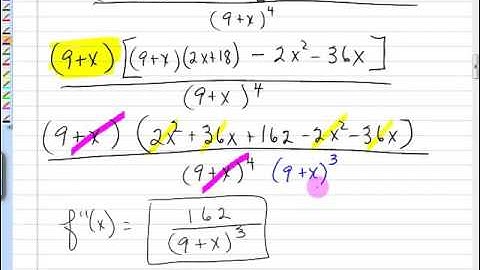 (9+x)⁴
(9+x) [(9+x)(2x+18) - 2x² - 36x]
(9+x)⁴
(9+x) (2x² + 36x + 162 - 2x² - 36x)
(9+x)⁴ (9+x)³
f''(x) = 162
(9+x)³